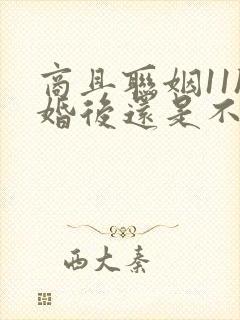 商且聯姻11
婚後還是不
西大秦